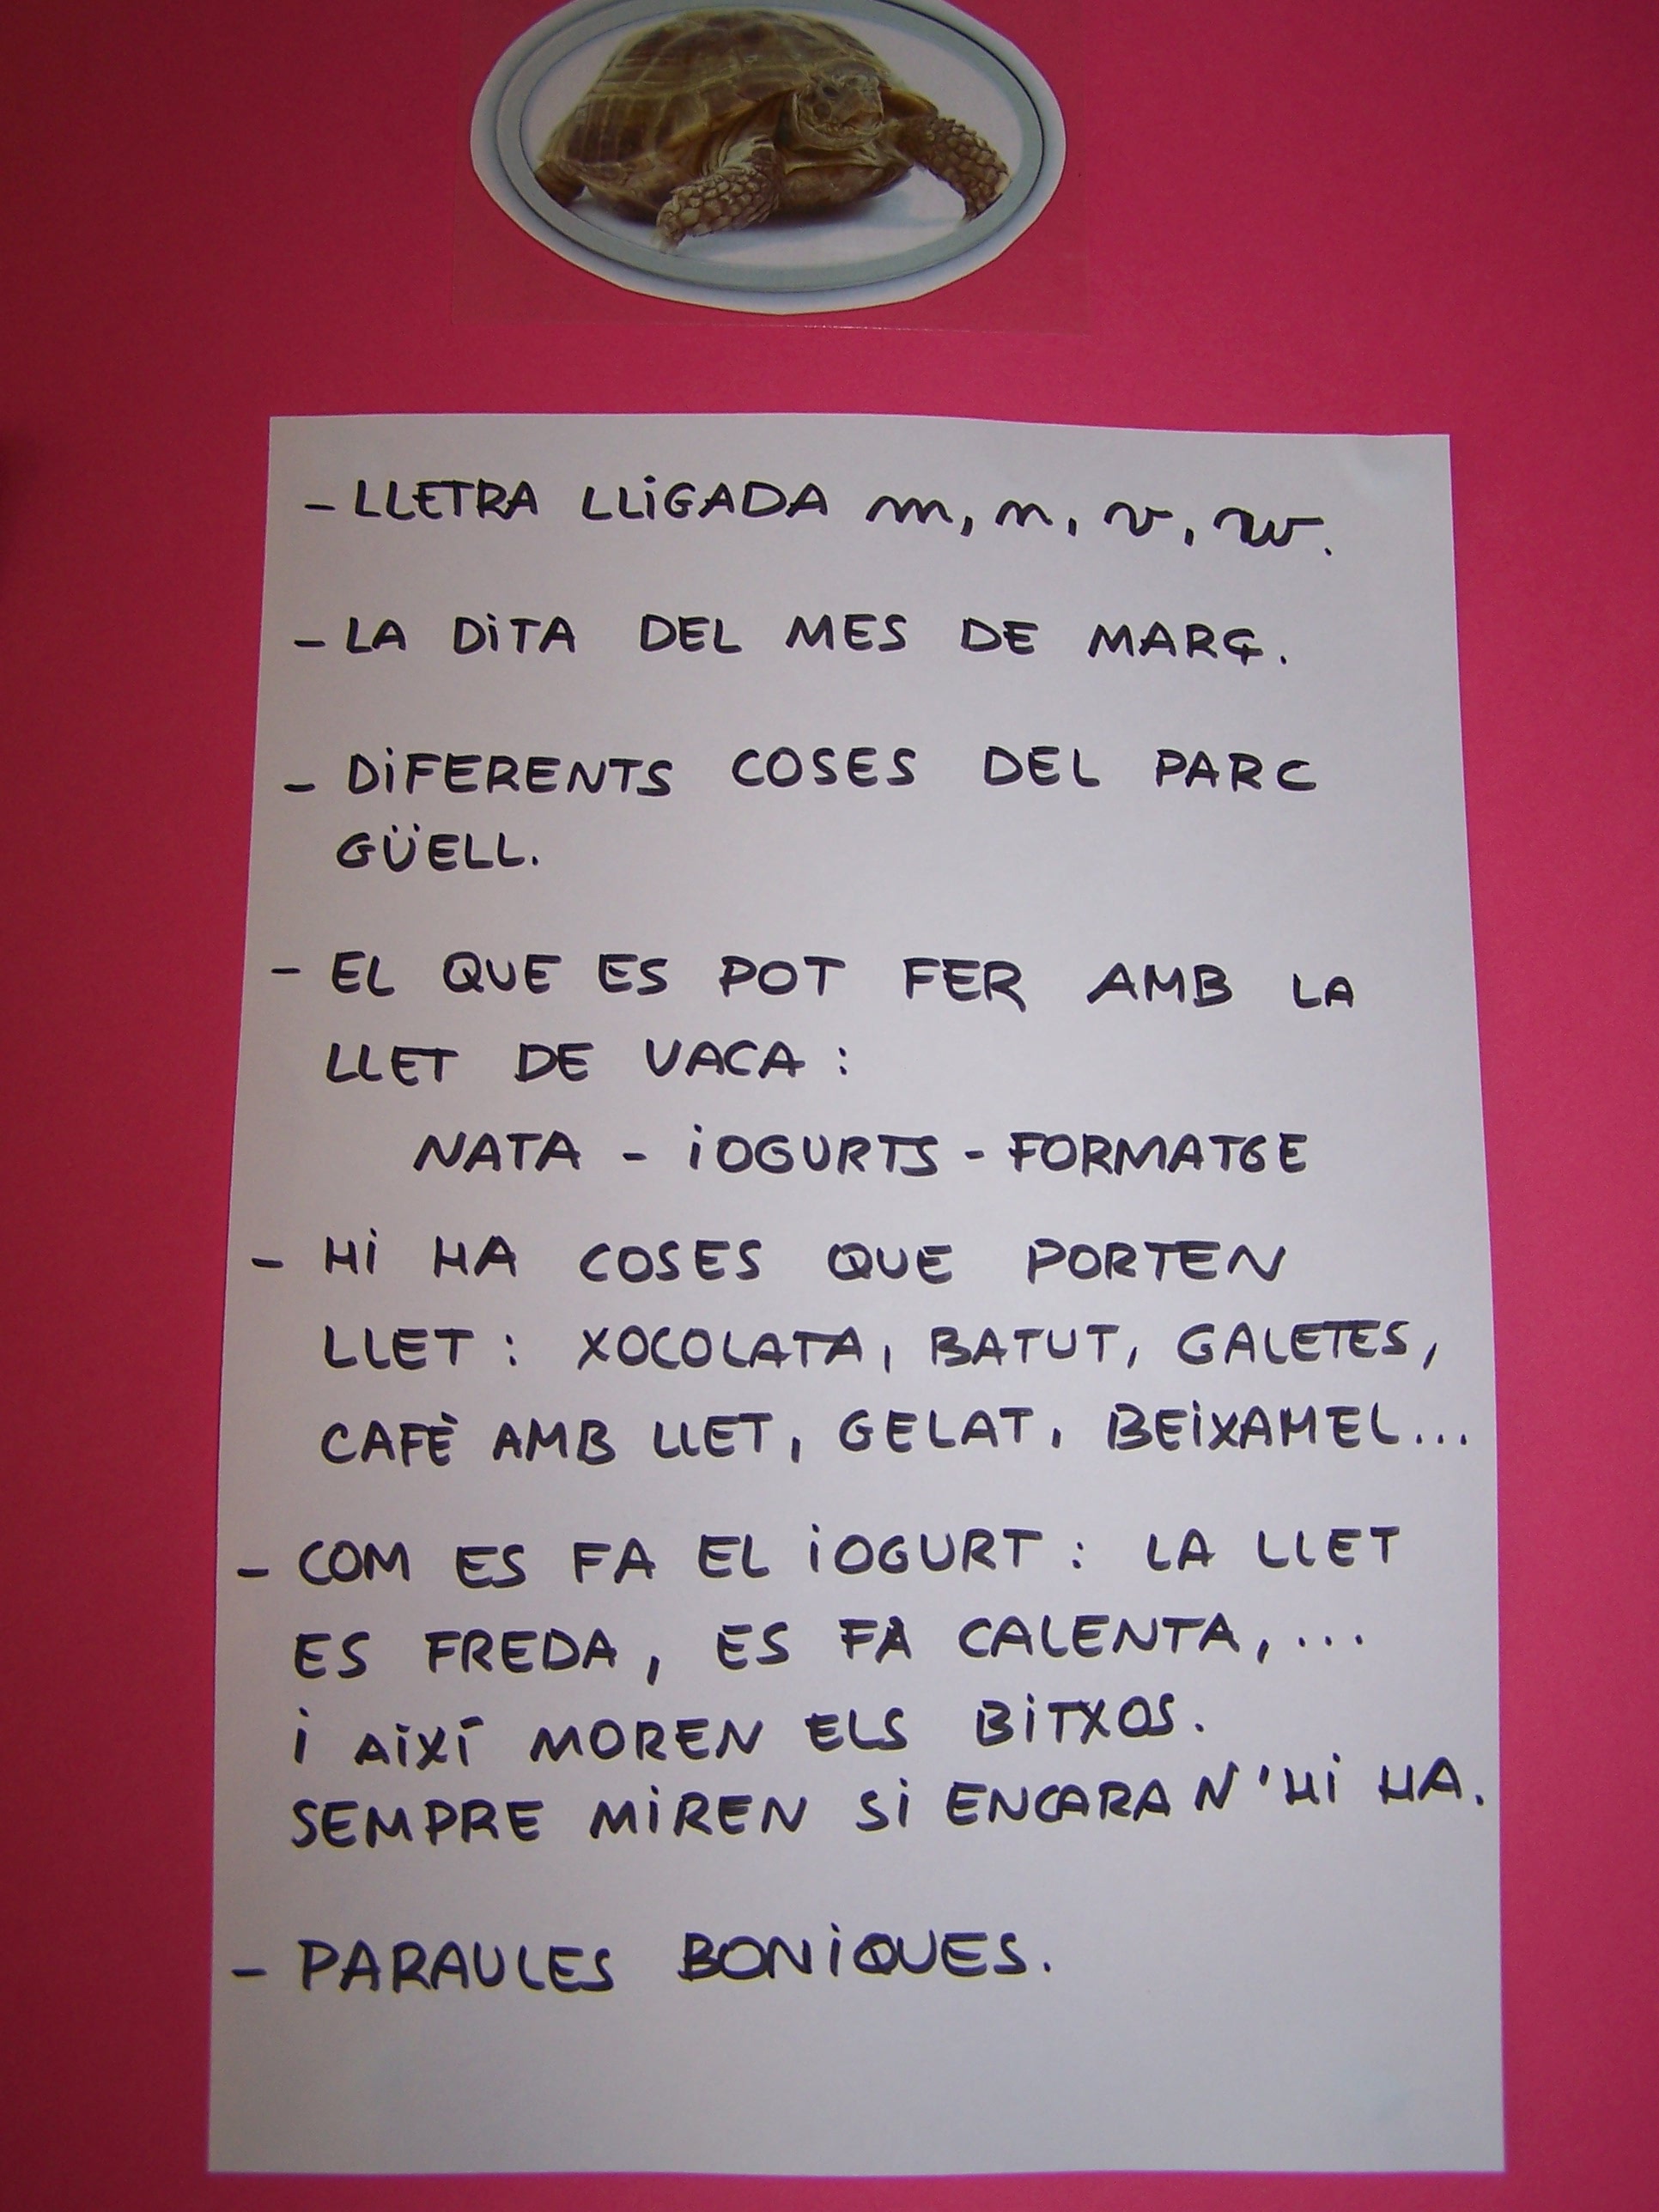 - LLETRA LLiGADA m, n, v, w.
- LA DiTA DEL MES DE MARÇ.
- DiFERENTS COSES DEL PARC
GÜELL.
- EL QUE ES POT FER AMB LA
LLET DE VACA :
NATA - iOGURTS - FORMATGE
- Hi HA COSES QUE PORTEN
LLET : XOCOLATA, BATUT, GALETES,
CAFÈ AMB LLET, GELAT, BEiXAMEL...
- COM ES FA EL iOGURT : LA LLET
ES FREDA, ES FA CALENTA, ...
i AiXÍ MOREN ELS BiTXOS.
SEMPRE MiREN Si ENCARA N'Hi HA.
- PARAULES BONiQUES.